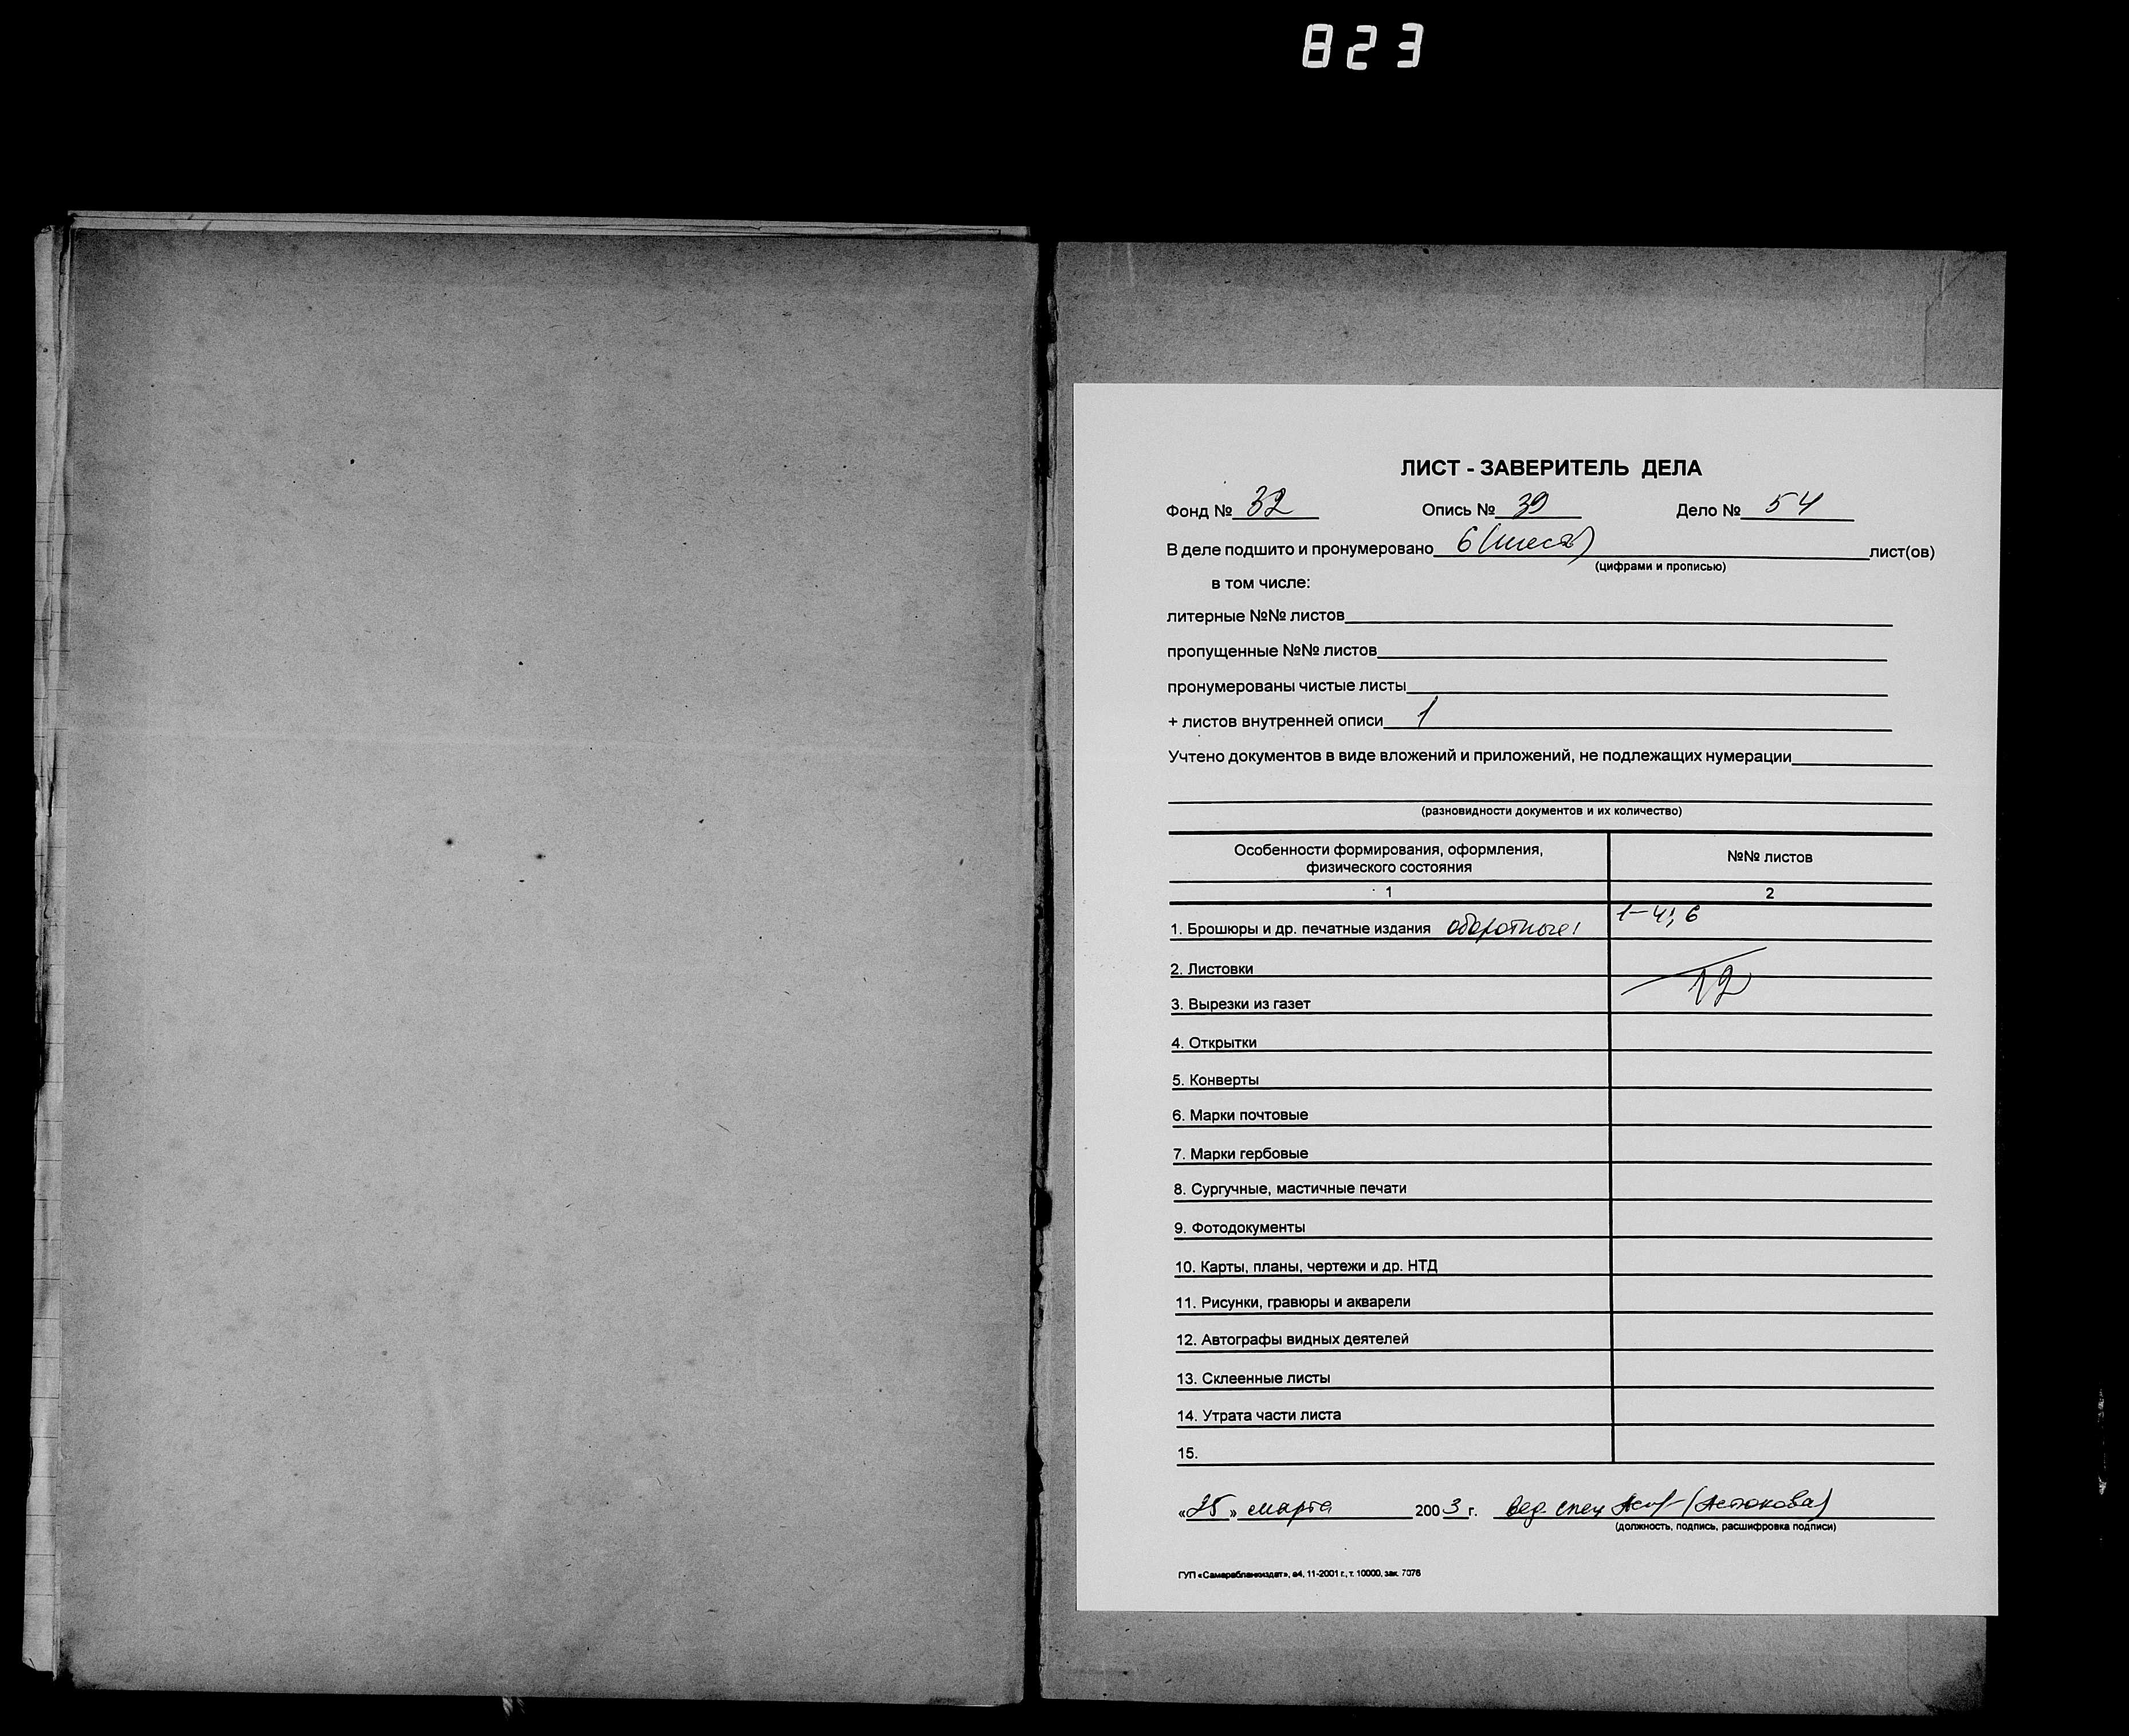 823
ЛИСТ - ЗАВЕРИТЕЛЬ ДЕЛА
Фонд № 32 Опись № 39 Дело № 54
В деле подшито и пронумеровано 6 (шесть) лист(ов)
(цифрами и прописью)
в том числе:
литерные №№ листов
пропущенные №№ листов
пронумерованы чистые листы
+ листов внутренней описи 1
Учтено документов в виде вложений и приложений, не подлежащих нумерации
(разновидности документов и их количество)
Особенности формирования, оформления, №№ листов
физического состояния
1 2
1. Брошюры и др. печатные издания оборотные: 1-4; 6
2. Листовки
3. Вырезки из газет
4. Открытки
5. Конверты
6. Марки почтовые
7. Марки гербовые
8. Сургучные, мастичные печати
9. Фотодокументы
10. Карты, планы, чертежи и др. НТД
11. Рисунки, гравюры и акварели
12. Автографы видных деятелей
13. Склеенные листы
14. Утрата части листа
15.
«25» марта 2003 г. Вед. спец
(должность, подпись, расшифровка подписи)
ГУП «Самарабланкиздат», а4, 11-2001 г., т. 10000, зак. 7076